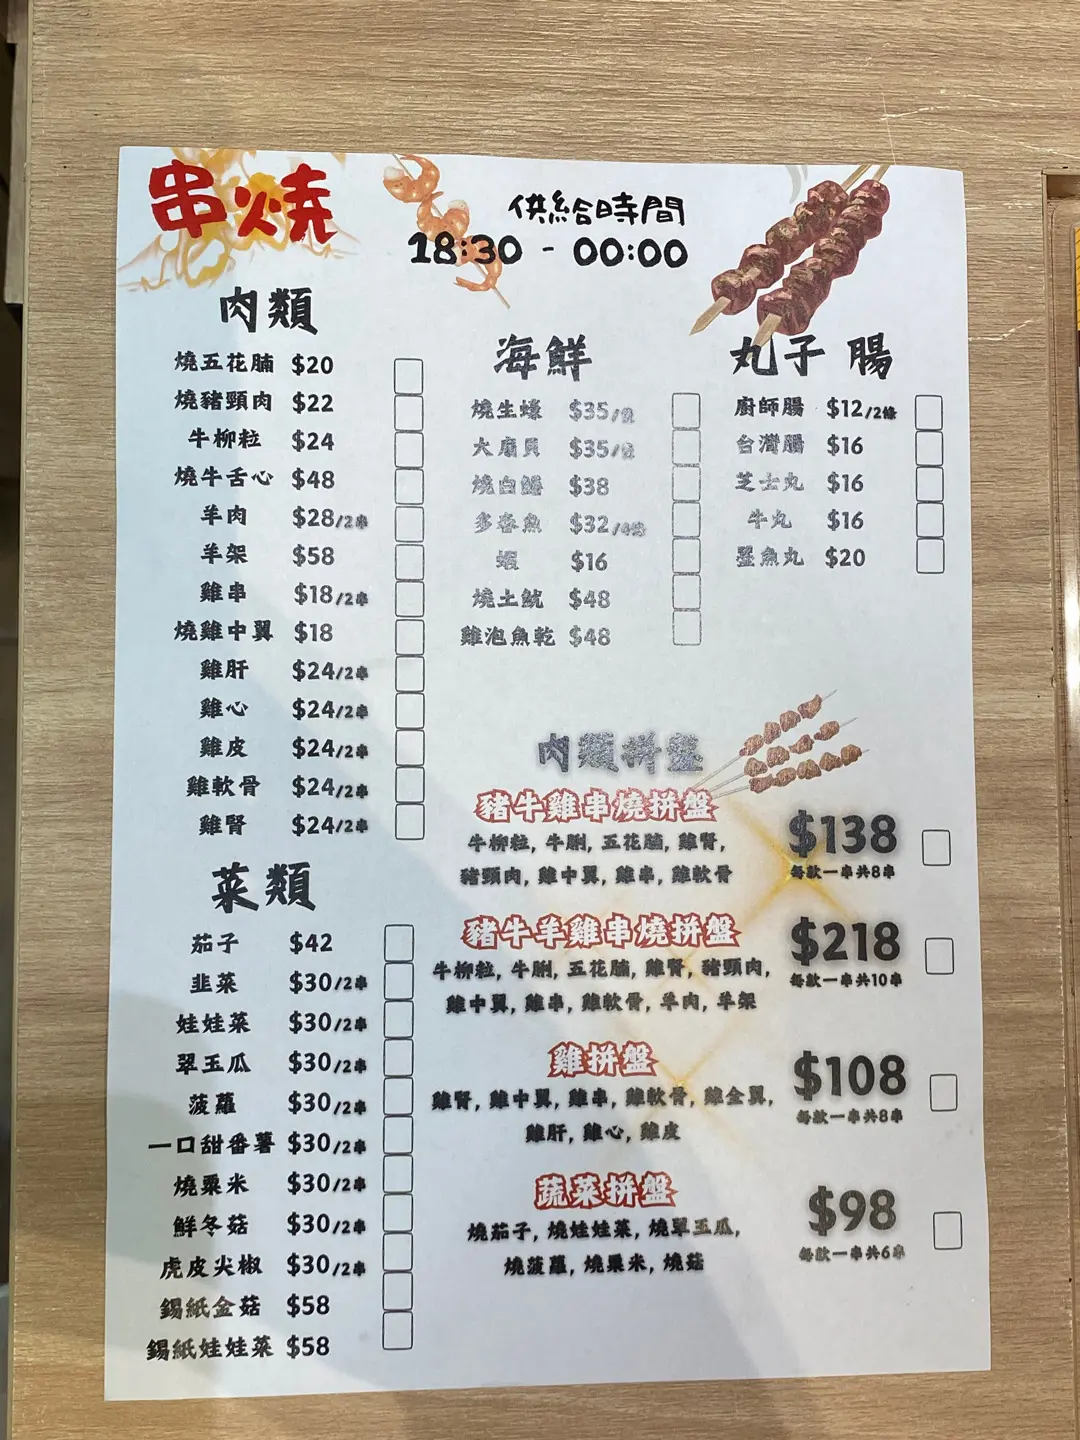 串燒
供給時間
18:30 - 00:00
肉類
燒五花腩 $20
燒豬頸肉 $22
牛柳粒 $24
燒牛舌心 $48
羊肉 $28/2串
羊架 $58
雞串 $18/2串
燒雞中翼 $18
雞肝 $24/2串
雞心 $24/2串
雞皮 $24/2串
雞軟骨 $24/2串
雞腎 $24/2串
菜類
茄子 $42
韭菜 $30/2串
娃娃菜 $30/2串
翠玉瓜 $30/2串
菠蘿 $30/2串
一口甜番薯 $30/2串
燒粟米 $30/2串
鮮冬菇 $30/2串
虎皮尖椒 $30/2串
錫紙金菇 $58
錫紙娃娃菜 $58
海鮮
燒生蠔 $35/隻
大扇貝 $35/隻
燒白鱔 $38
多春魚 $32/4條
蝦 $16
燒土魷 $48
雞泡魚乾 $48
丸子 腸
廚師腸 $12/2條
台灣腸 $16
芝士丸 $16
牛丸 $16
墨魚丸 $20
肉類拼盤
豬牛雞串燒拼盤
牛柳粒, 牛脷, 五花腩, 雞腎,
豬頸肉, 雞中翼, 雞串, 雞軟骨
$138
每款一串共8串
豬牛羊雞串燒拼盤
牛柳粒, 牛脷, 五花腩, 雞腎, 豬頸肉,
雞中翼, 雞串, 雞軟骨, 羊肉, 羊架
$218
每款一串共10串
雞拼盤
雞腎, 雞中翼, 雞串, 雞軟骨, 雞全翼,
雞肝, 雞心, 雞皮
$108
每款一串共8串
蔬菜拼盤
燒茄子, 燒娃娃菜, 燒翠玉瓜,
燒菠蘿, 燒粟米, 燒菇
$98
每款一串共6串